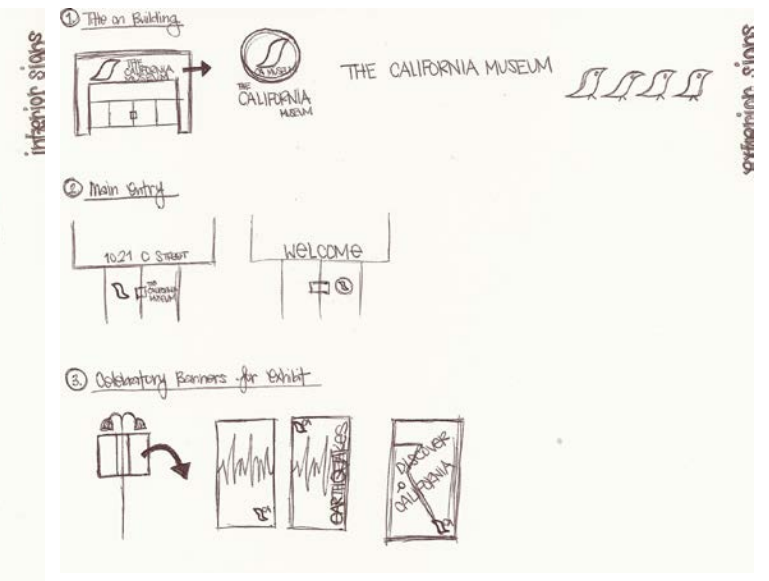 interior signs
① Title on Building
THE
CALIFORNIA
MUSEUM
CA MUSEUM
THE
CALIFORNIA
MUSEUM
THE CALIFORNIA MUSEUM
exterior signs
② Main Entry
1021 O STREET
THE
CALIFORNIA
MUSEUM
WELCOME
③. Celebratory Banners for Exhibit
EARTHQUAKES
DISCOVER
CALIFORNIA